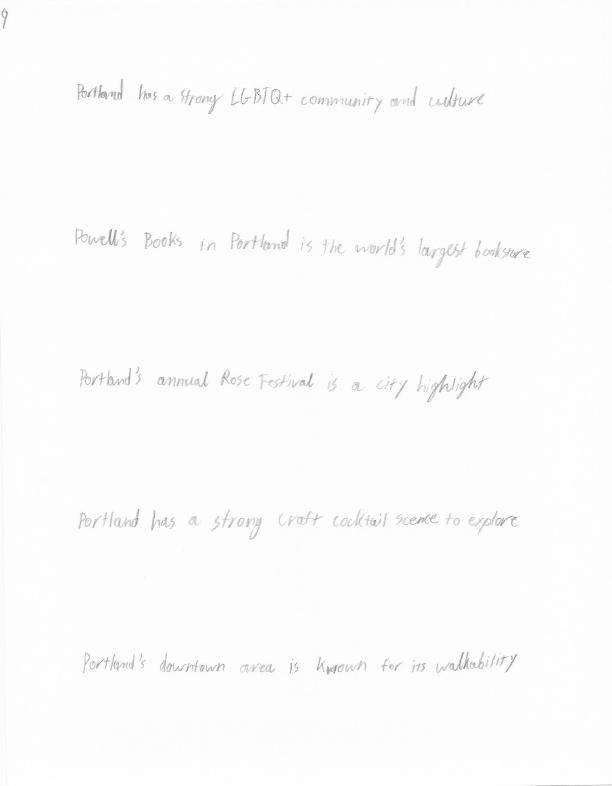 9
Portland has a strong LGBTQ+ community and culture
Powell's Books in Portland is the world's largest bookstore
Portland's annual Rose Festival is a city highlight
Portland has a strong craft cocktail scence to explore
Portland's downtown area is known for its walkability